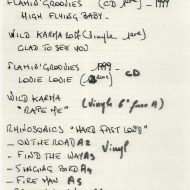 FLAMIN' GROOVIES (CD 1999) - 1999
HIGH FLYING BABY.
WILD KARMA (vinyle face)
GLAD TO SEE YOU
FLAMIN' GROOVIES 1999
LOUIE LOUIE (face) - CD
WILD KARMA (vinyle 6° face A)
"RAPE ME"
RHINOSONICS "HARD FAST LOUD"
- ON THE ROAD A2 Vinyl
- FIND THE WAY A3
- SINGING BIRD A4
- FIRE MAN A5